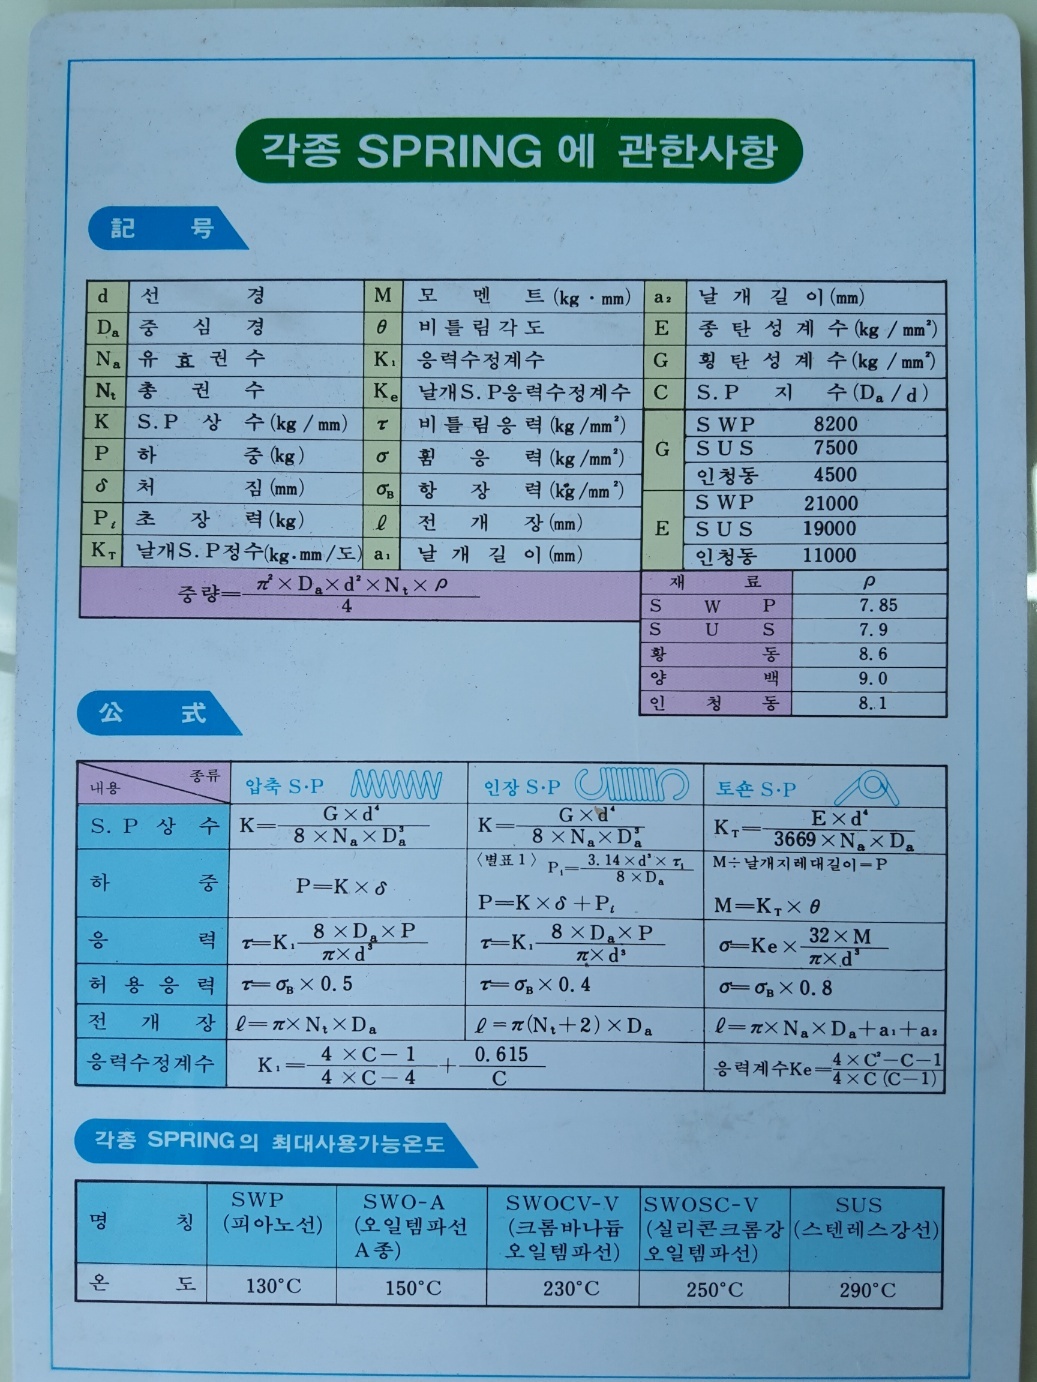 각종 SPRING 에 관한사항
記 号
d 선 경 M 모 멘 트 (kg・mm) a₂ 날 개 길 이 (mm)
Da 중 심 경 θ 비틀림각도 E 종 탄 성 계 수 (kg/mm²)
Na 유 효 권 수 K₁ 응력수정계수 G 횡 탄 성 계 수 (kg/mm²)
Nt 총 권 수 Ke 날개S.P응력수정계수 C S.P 지 수 (Da/d)
K S.P 상 수 (kg/mm) τ 비틀림응력 (kg/mm²) G SWP 8200
P 하 중 (kg) σ 휨 응 력 (kg/mm²) SUS 7500
δ 처 짐 (mm) σB 항 장 력 (kg/mm²) 인청동 4500
Pi 초 장 력 (kg) ℓ 전 개 장 (mm) E SWP 21000
KT 날개S.P정수(kg.mm/도) a₁ 날 개 길 이 (mm) SUS 19000
인청동 11000
중량=π²×Da×d²×Nt×ρ/4
재 료 ρ
S W P 7.85
S U S 7.9
황 동 8.6
양 백 9.0
인 청 동 8.1
公 式
내용 종류 압축 S·P 인장 S·P 토숀 S·P
S.P 상 수 K=G×d⁴/8×Na×Da³ K=G×d⁴/8×Na×Da³ KT=E×d⁴/3669×Na×Da
하 중 P=K×δ 〈별표1〉 P₁=3.14×d³×τ₁/8×Da M÷날개지레대길이=P
P=K×δ+Pi M=KT×θ
응 력 τ=K₁ 8×Da×P/π×d³ τ=K₁ 8×Da×P/π×d³ σ=Ke×32×M/π×d³
허 용 응 력 τ=σB×0.5 τ=σB×0.4 σ=σB×0.8
전 개 장 ℓ=π×Nt×Da ℓ=π(Nt+2)×Da ℓ=π×Na×Da+a₁+a₂
응력수정계수 K₁=4×C-1/4×C-4+0.615/C 응력계수Ke=4×C²-C-1/4×C(C-1)
각종 SPRING의 최대사용가능온도
명 칭 SWP SWO-A SWOCV-V SWOSC-V SUS
(피아노선) (오일템파선 (크롬바나듐 (실리콘크롬강 (스텐레스강선)
A종) 오일템파선) 오일템파선)
온 도 130°C 150°C 230°C 250°C 290°C